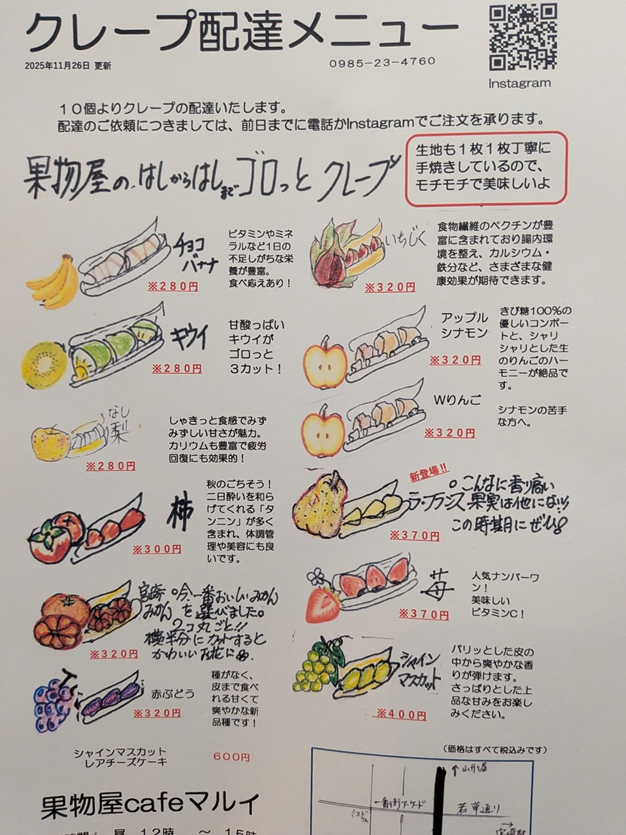 クレープ配達メニュー
2025年11月26日 更新
0985-23-4760
Instagram
10個よりクレープの配達いたします。
配達のご依頼につきましては、前日までに電話かInstagramでご注文を承ります。
果物屋の、はしからはしまでゴロっと クレープ
生地も1枚1枚丁寧に
手焼きしているので、
モチモチで美味しいよ
チョコ
バナナ
※280円
ビタミンやミネ
ラルなど1日の
不足しがちな栄
養が豊富。
食べ応えあり!
いちじく
※320円
食物繊維のペクチンが豊
富に含まれており腸内環
境を整え、カルシウム・
鉄分など、さまざまな健
康効果が期待できます。
キウイ
※280円
甘酸っぱい
キウイが
ゴロっと
3カット!
アップル
シナモン
※320円
きび糖100%の
優しいコンポー
トと、シャリ
シャリとした生
のりんごのハー
モニーが絶品で
す。
なし
梨
※280円
しゃきっと食感でみず
みずしい甘さが魅力。
カリウムも豊富で疲労
回復にも効果的!
Wりんご
※320円
シナモンの苦手
な方へ。
柿
※300円
秋のごちそう!
二日酔いを和ら
げてくれる「タ
ンニン」が多く
含まれ、体調管
理や美容にも良
いです。
新登場!!
ラ・フランス
※370円
こんなに香り高い
果実は他にない!!
この時期にぜひ
宮崎
みかん
※320円
今一番おいしいみかん
を選びました。
2コ丸ごと!!
横半分にカットすると
かわいいお花に
苺
※370円
人気ナンバーワ
ン!
美味しい
ビタミンC!
赤ぶどう
※320円
種がなく、
皮まで食べ
れる甘くて
爽やかな新
品種です!
シャイン
マスカット
※400円
パリッとした皮の
中から爽やかな香
りが弾けます。
さっぱりとした上
品な甘みをお楽し
みください。
シャインマスカット
レアチーズケーキ
600円
(価格はすべて税込みです)
果物屋cafeマルイ
一番街アーケード
若草通り